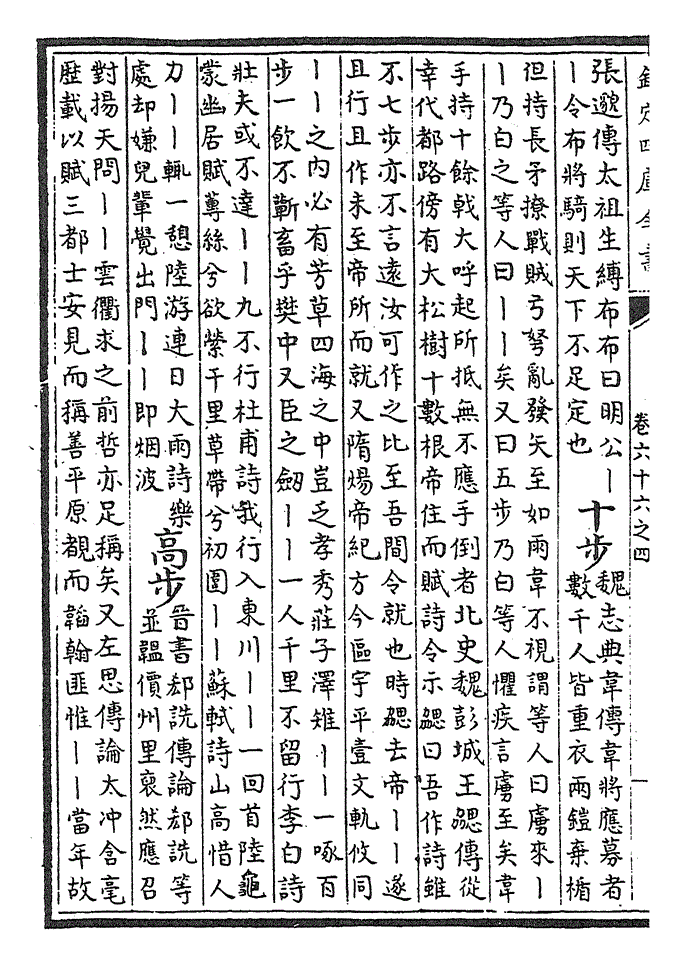 欽定四庫全書
卷六十六之四
一
張邈傳太祖生縛布布曰明公丨
丨令布將騎則天下不足定也
十步
魏志典韋傳韋將應募者
數千人皆重衣兩鎧棄楯
但持長矛撩戰賊弓弩亂發矢至如雨韋不視謂等人曰虜來丨
丨乃白之等人曰丨丨矣又曰五步乃白等人懼疾言虜至矣韋
手持十餘戟大呼起所抵無不應手倒者北史魏彭城王勰傳從
幸代都路傍有大松樹十數根帝住而賦詩令示勰曰吾作詩雖
不七步亦不言遠汝可作之比至吾間令就也時勰去帝丨丨遂
且行且作未至帝所而就又隋煬帝紀方今區宇平壹文軌攸同
丨丨之内必有芳草四海之中豈乏孝秀莊子澤雉丨丨一啄百
步一飲不蘄畜乎樊中又臣之劔丨丨一人千里不留行李白詩
壯夫或不達丨丨九不行杜甫詩我行入東川丨丨一回首陸龜
蒙幽居賦蓴絲兮欲縈千里草帶兮初圍丨丨蘇軾詩山高惜人
力丨丨輒一憩陸游連日大雨詩樂
處却嫌兒輩覺出門丨丨即烟波
高步
晉書郄詵傳論郄詵等
並韞價州里裒然應召
對揚天問丨丨雲衢求之前哲亦足稱矣又左思傳論太冲含毫
歷載以賦三都士安見而稱善平原覩而韜翰匪惟丨丨當年故